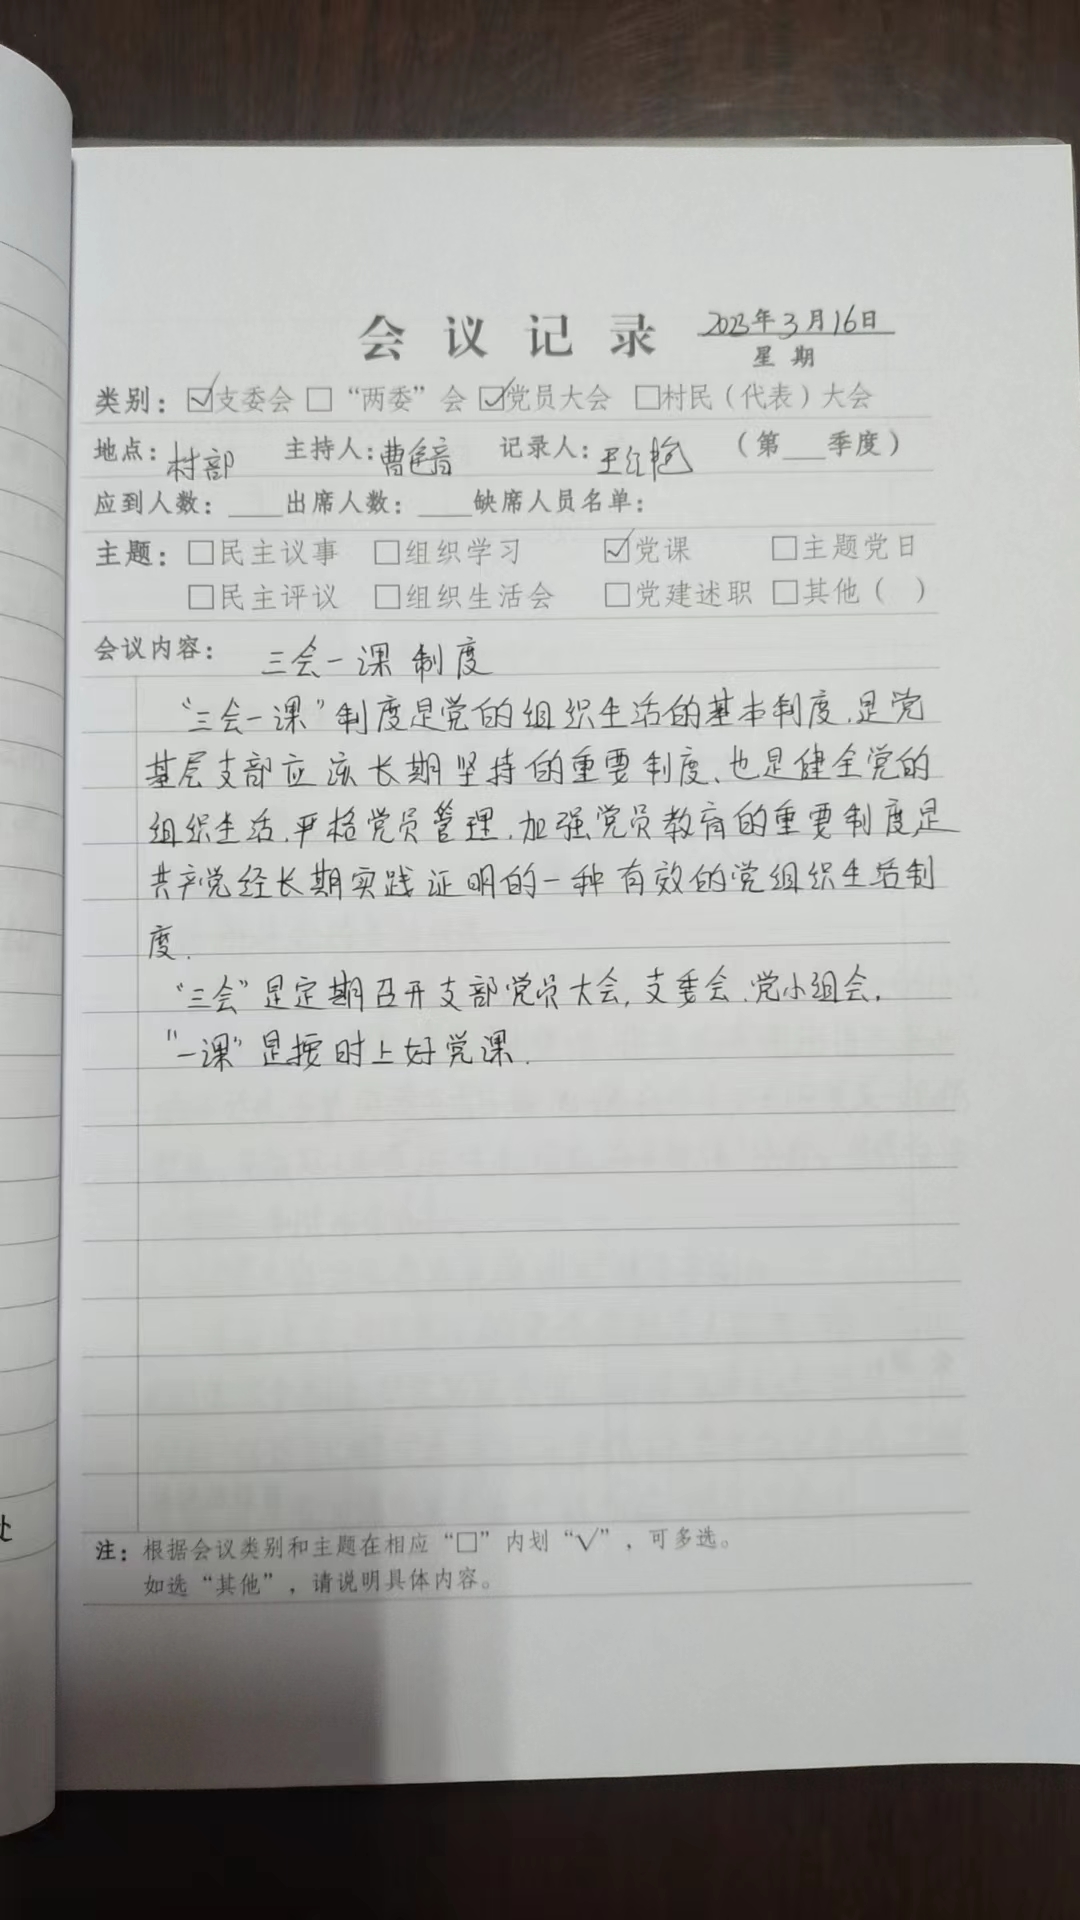 会议记录 2023年3月16日
星期
类别：☑支委会 □“两委”会 ☑党员大会 □村民（代表）大会
地点：村部 主持人：曹 音 记录人：王红艳 （第 季度）
应到人数： 出席人数： 缺席人员名单：
主题：□民主议事 □组织学习 ☑党课 □主题党日
□民主评议 □组织生活会 □党建述职 □其他（ ）
会议内容： 三会一课 制度
“三会一课”制度是党的组织生活的基本制度.是党
基层支部应该长期坚持的重要制度、也是健全党的
组织生活.严格党员管理.加强党员教育的重要制度是
共产党经长期实践证明的一种有效的党组织生活制
度.
“三会”是定期召开支部党员大会,支委会.党小组会.
“一课”是按时上好党课.
注：根据会议类别和主题在相应“□”内划“√”，可多选。
如选“其他”，请说明具体内容。
处